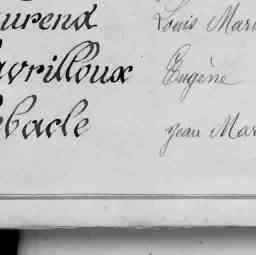 urend Louis Mari
avrilloux Eugène
ebacle Jean Mar